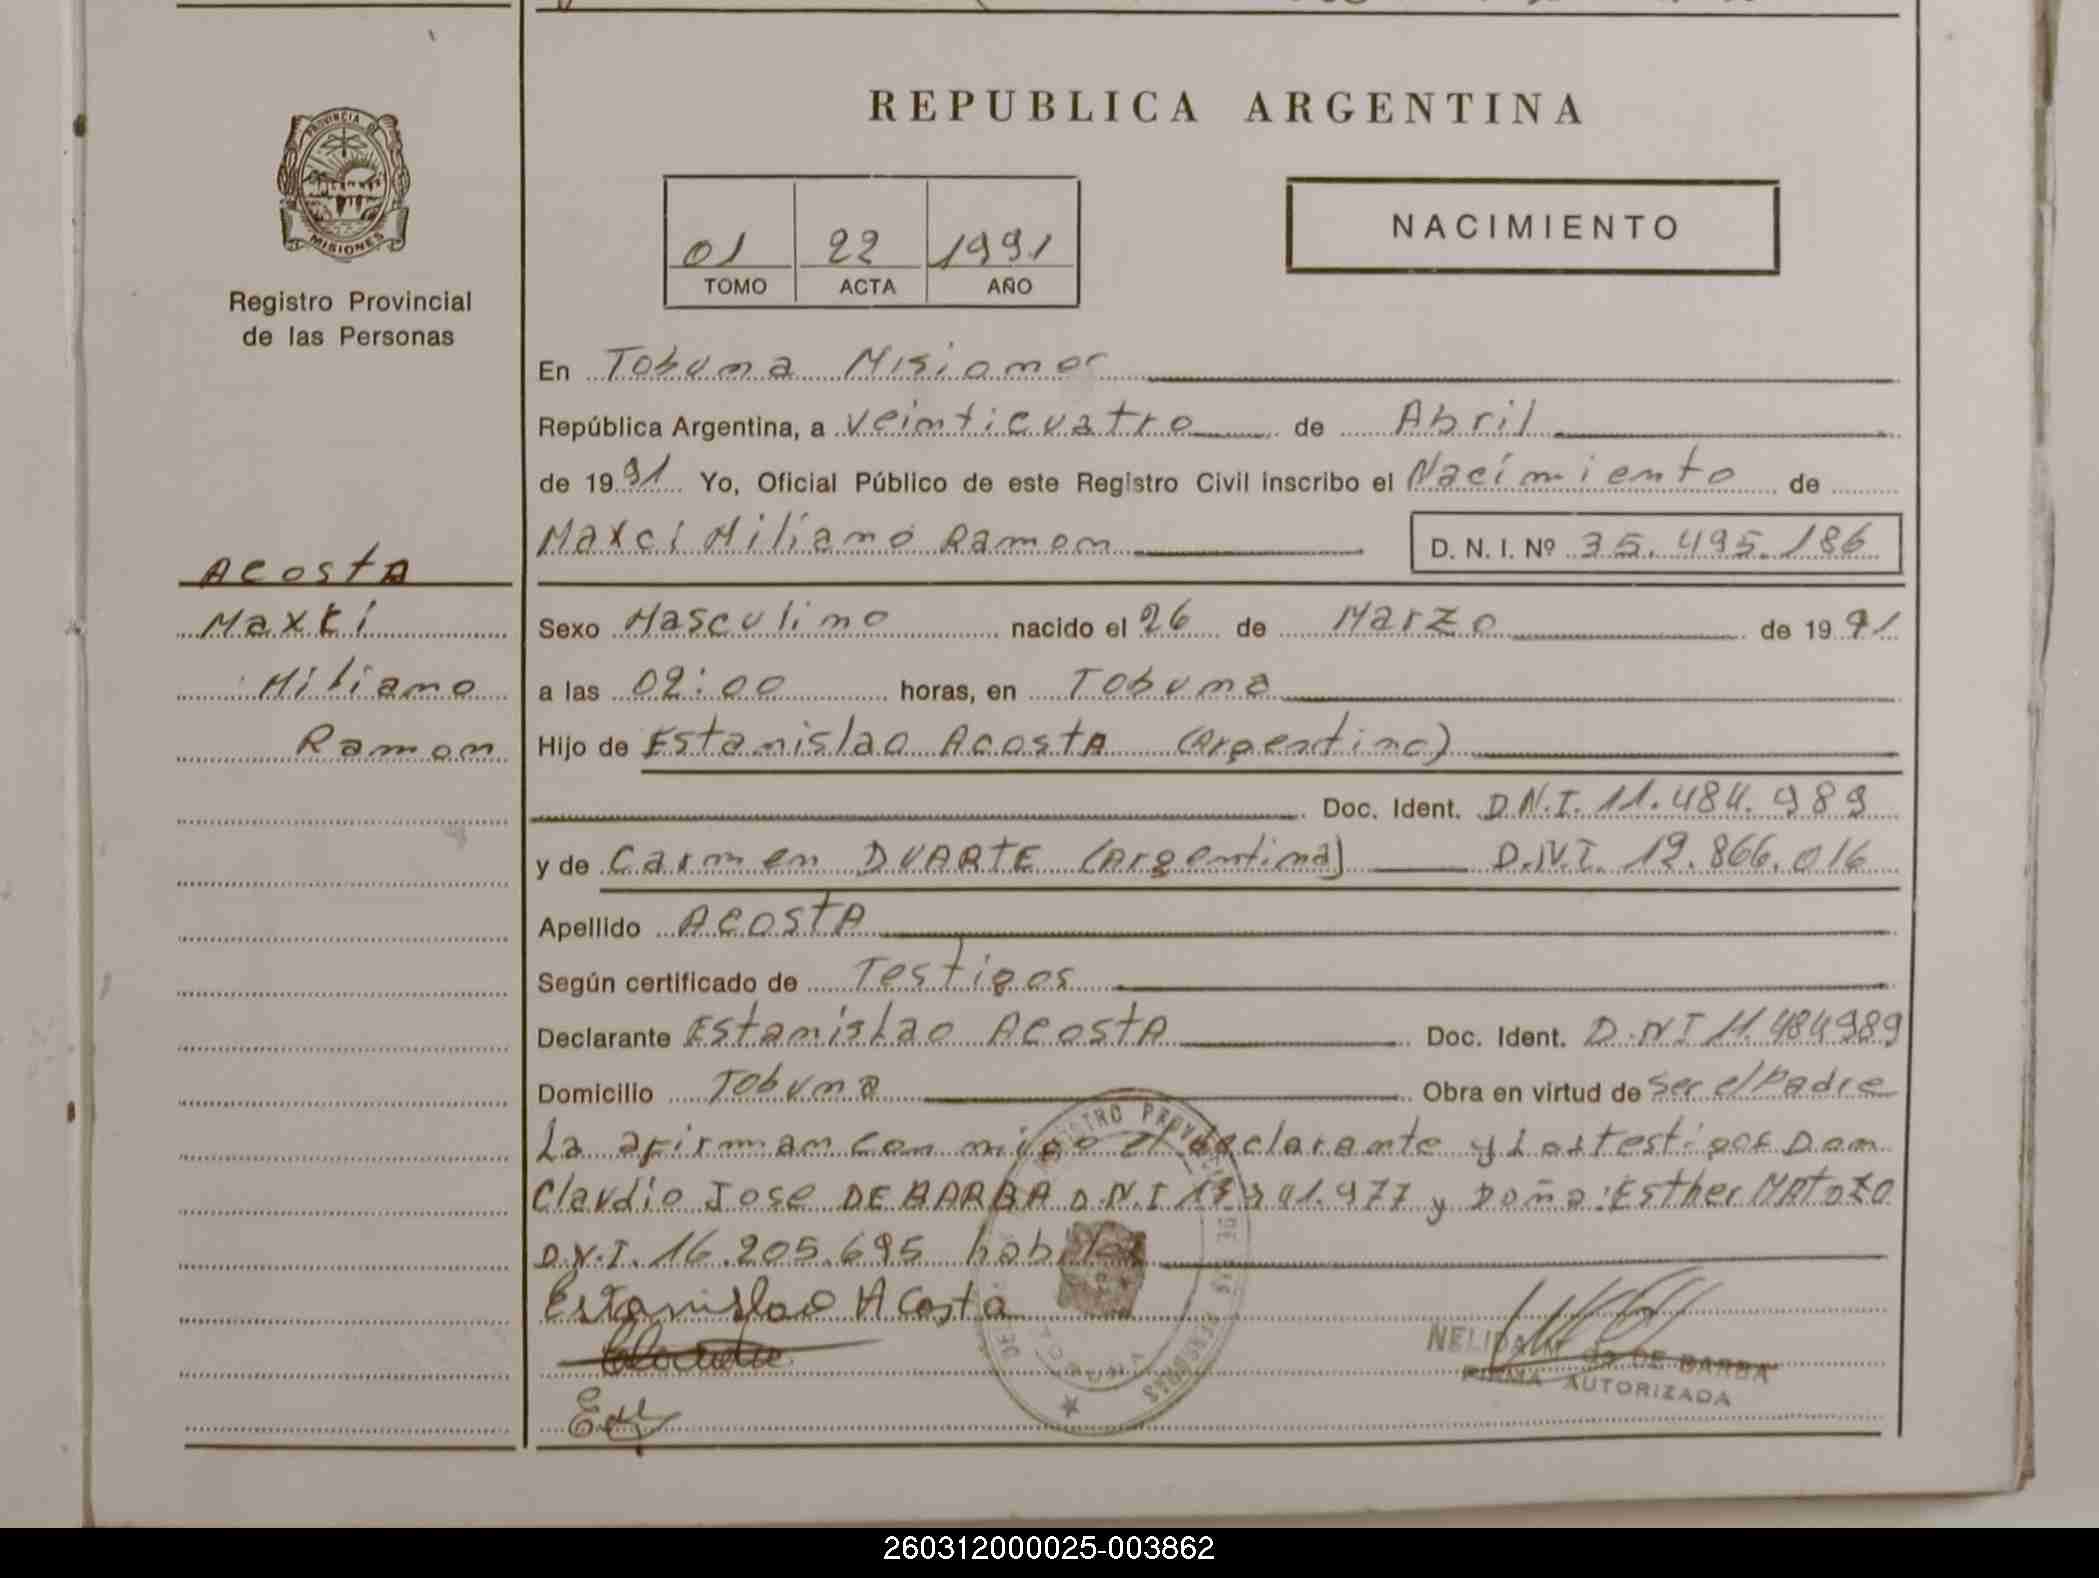 REPUBLICA ARGENTINA
PROVINCIA DE
MISIONES
Registro Provincial
de las Personas
01 22 1991
TOMO ACTA AÑO
NACIMIENTO
En Tobuna Misiones
República Argentina, a veinticuatro de Abril
de 1991 Yo, Oficial Público de este Registro Civil inscribo el Nacimiento de
Maxci Miliano Ramon D. N. I. Nº 35.495.186
Acosta
Maxci
Miliano
Ramon
Sexo Masculino nacido el 26 de Marzo de 1991
a las 02:00 horas, en Tobuna
Hijo de Estanislao Acosta (Argentino)
Doc. Ident. D.N.I. 11.484.989
y de Carmen DUARTE (Argentina) D.N.I. 12.866.016
Apellido Acosta
Según certificado de Testigos
Declarante Estanislao Acosta Doc. Ident. D.N.I 11.484989
Domicilio Tobuna Obra en virtud de ser el Padre
La afirman con migo el declarante y Los testigos Don
Claudio Jose DE BARBA D.N.I y Doña: Esther MATOZO
D.N.I. 16.205.695 habiles
Estanislao Acosta
NELIDA DE BARBA
FIRMA AUTORIZADA
REGISTRO PROVINCIAL DE LAS PERSONAS
TOBUNA
260312000025-003862